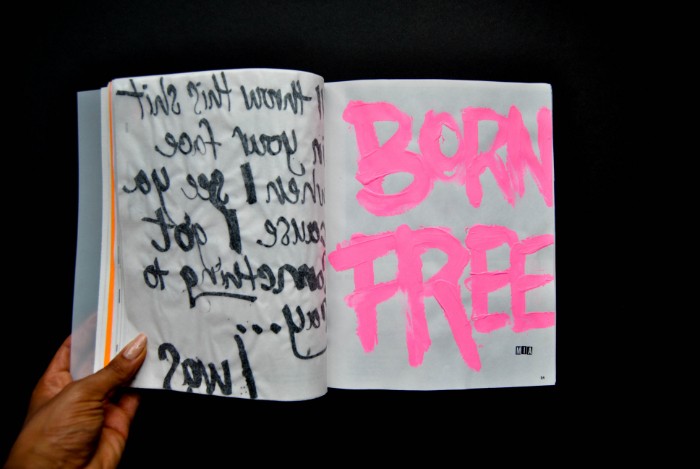 I'll throw this shit
in your face
when I see ya
cause I got
something to
say...
I was
BORN
FREE
MIA